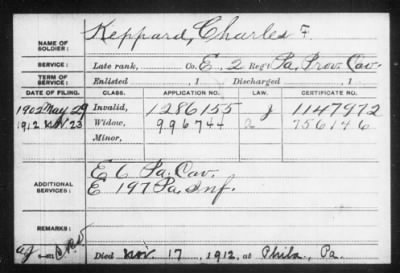 NAME OF SOLDIER: Keppard, Charles F.
SERVICE: Late rank, Co. E, 2 Reg't Pa. Prov. Cav.
TERM OF SERVICE: Enlisted , 1 Discharged , 1
DATE OF FILING. CLASS. APPLICATION NO. LAW. CERTIFICATE NO.
1902 May 29 Invalid, 1286155 J 1147972
1912 Nov. 23 Widow, 996744 756146
Minor,
ADDITIONAL SERVICES: E 6 Pa. Cav.
E 197 Pa. Inf.
REMARKS:
Died Nov. 17, 1912, at Phila., Pa.